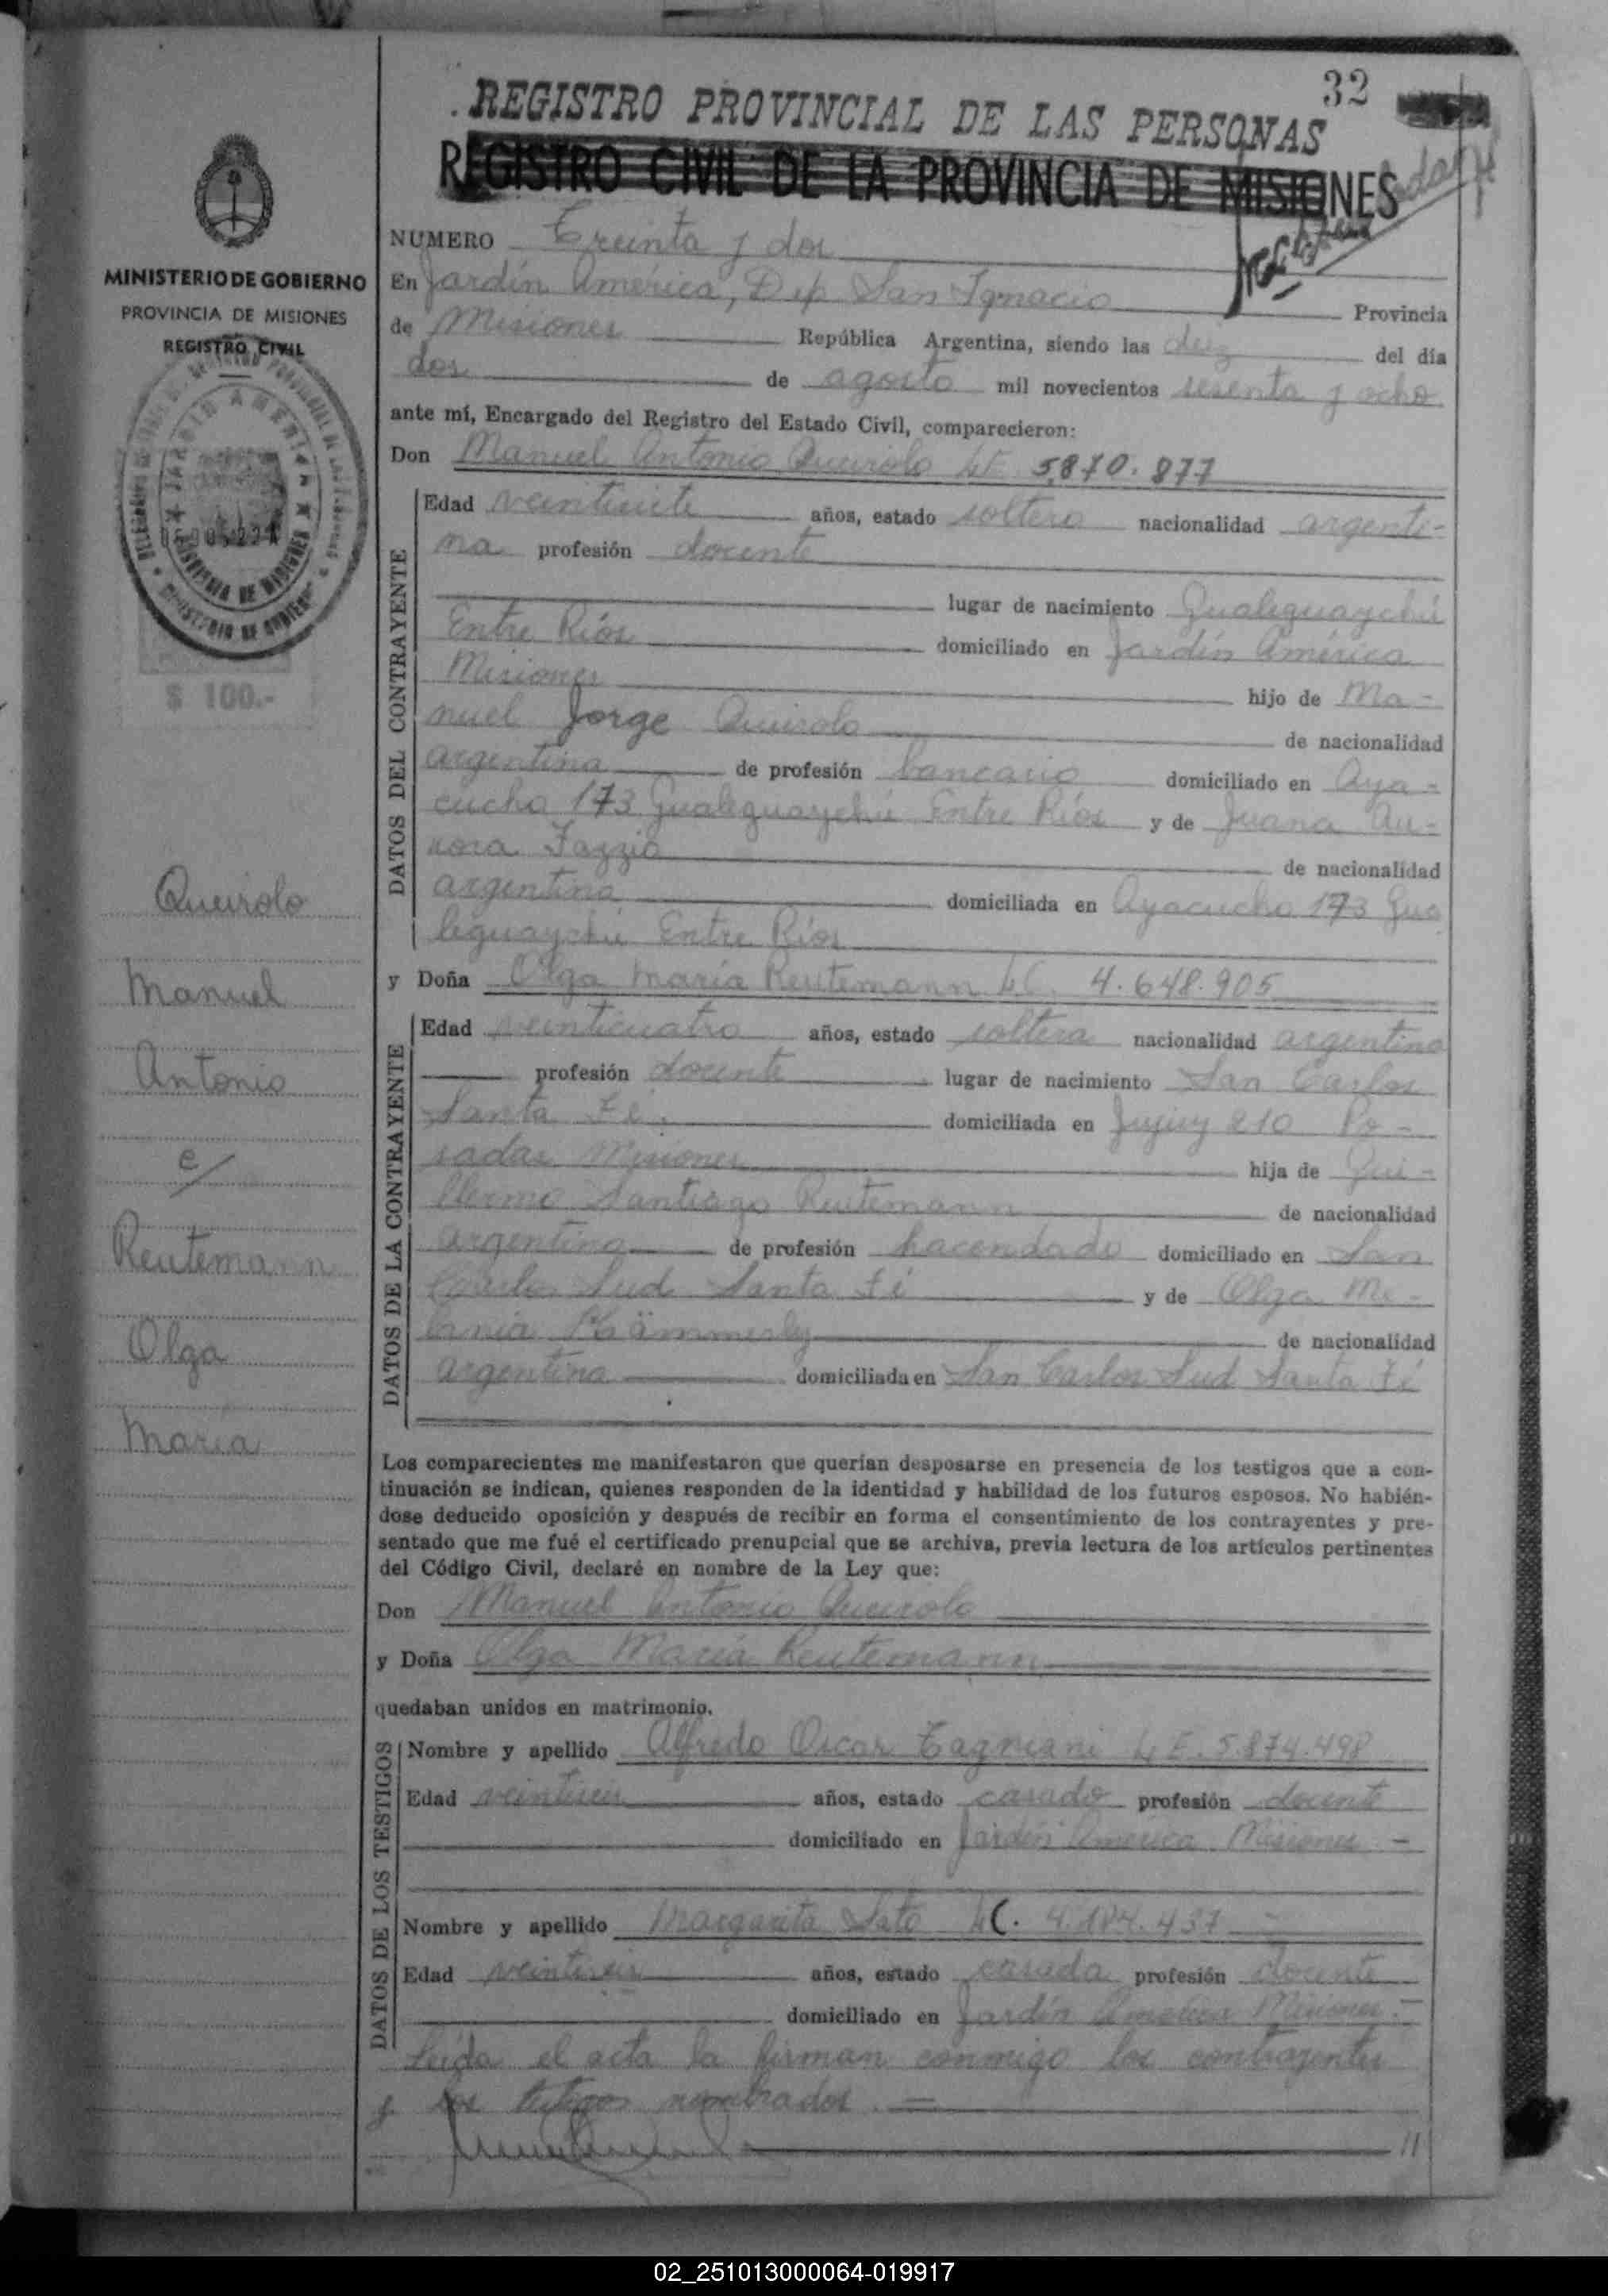 32
REGISTRO PROVINCIAL DE LAS PERSONAS
REGISTRO CIVIL DE LA PROVINCIA DE MISIONES
MINISTERIO DE GOBIERNO
PROVINCIA DE MISIONES
REGISTRO CIVIL
$ 100.-
Queirolo
Manuel
Antonio
c/
Reutemann
Olga
María
NUMERO Treinta y dos
En Jardín América, Dep San Ignacio Provincia
de Misiones República Argentina, siendo las diez del día
dos de agosto mil novecientos sesenta y ocho
ante mí, Encargado del Registro del Estado Civil, comparecieron:
Don Manuel Antonio Queirolo L.E. 5.870.877
DATOS DEL CONTRAYENTE
Edad veintisiete años, estado soltero nacionalidad argenti-
na profesión docente
lugar de nacimiento Gualeguaychú
Entre Ríos domiciliado en Jardín América
Misiones hijo de Ma-
nuel Jorge Queirolo de nacionalidad
argentina de profesión bancario domiciliado en Aya-
cucho 173 Gualeguaychú Entre Ríos y de Juana Au-
rora Fazzio de nacionalidad
argentina domiciliada en Ayacucho 173 Gua
leguaychú Entre Ríos
y Doña Olga María Reutemann L.C. 4.648.905
DATOS DE LA CONTRAYENTE
Edad veinticuatro años, estado soltera nacionalidad argentina
profesión docente lugar de nacimiento San Carlos
Santa Fé. domiciliada en Jujuy 210 Po-
sadas Misiones hija de Gui-
llermo Santiago Reutemann de nacionalidad
argentina de profesión hacendado domiciliado en San
Carlos Sud Santa Fé y de Olga Me-
lania Krämmerly de nacionalidad
argentina domiciliada en San Carlos Sud Santa Fé
Los comparecientes me manifestaron que querían desposarse en presencia de los testigos que a con-
tinuación se indican, quienes responden de la identidad y habilidad de los futuros esposos. No habién-
dose deducido oposición y después de recibir en forma el consentimiento de los contrayentes y pre-
sentado que me fué el certificado prenupcial que se archiva, previa lectura de los artículos pertinentes
del Código Civil, declaré en nombre de la Ley que:
Don Manuel Antonio Queirolo
y Doña Olga María Reutemann
quedaban unidos en matrimonio.
DATOS DE LOS TESTIGOS
Nombre y apellido Alfredo Oscar Tagniani L.E. 5.874.498
Edad veintiseis años, estado casado profesión docente
domiciliado en Jardín América Misiones -
Nombre y apellido Margarita Sato L.C. 4.184.437 -
Edad veintiseis años, estado casada profesión docente
domiciliado en Jardín América Misiones.-
Leída el acta la firman conmigo los contrayentes
y los testigos nombrados. =
//
02_251013000064-019917